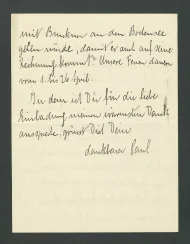 mit Bruckner an den Bodensee
gehen würde, damit er auch auf seine
Rechnung kommt. Unsere Ferien dauern
vom 1. bis 26 Sept.
In dem ich Dir für die liebe
Einladung meinen wärmsten Dank
ausspreche, grüsst Dich Dein
dankbarer Paul